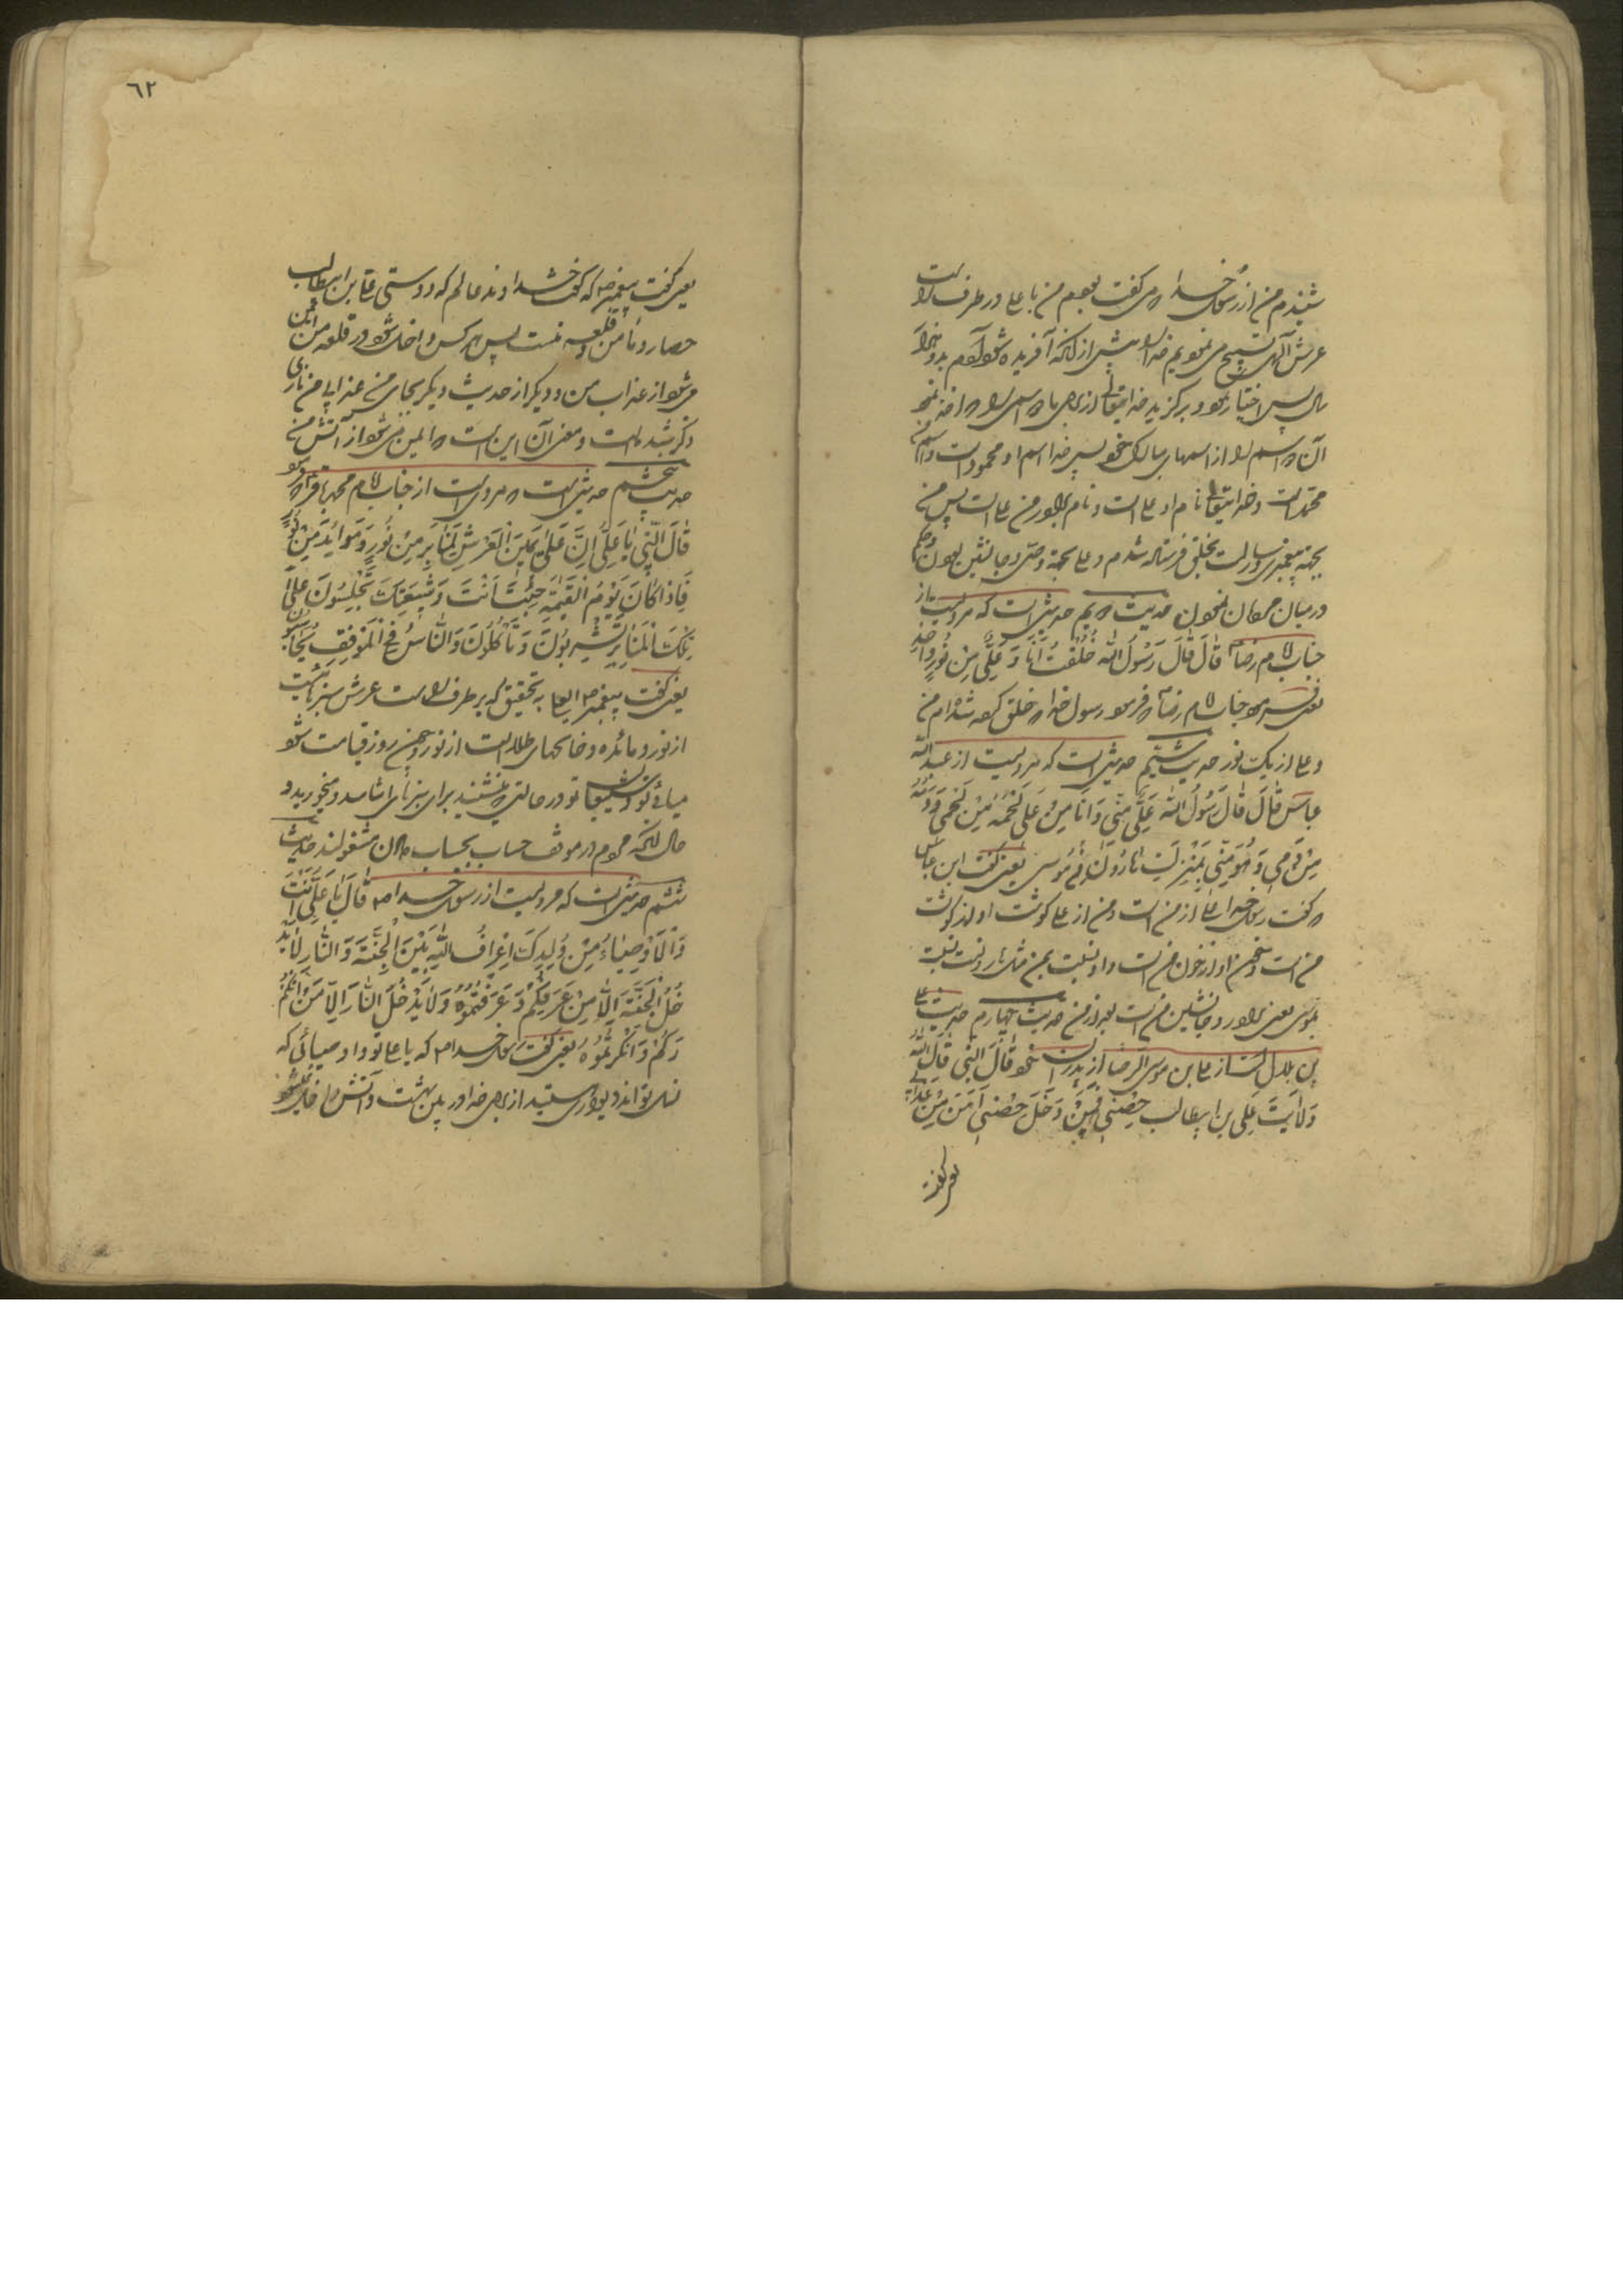 شنیدم من از رسول خدا که می گفت بودم من با علی در طرف راست
عرش الهی تسبیح می نمودیم خدا را پیش از آنکه آفریده شود آدم بدو هزار
سال پس اختیار نمود و برگزید خدایتعالی از برای ما اسمی را که اخذ نمود
آن اسم را از اسمهای مبارک خود پس خدا اسم او محمود است و اسم من
محمد است و خدایتعالی نام او علی است و نام برادر من علی است پس من
بجهة پیغمبری و رسالت بخلق فرستاده شدم و علی بجهة وصی و جانشین بودن و حکم
در میان مردمان نمودن حدیث دویم حدیثی است که مرویست از
جناب امام رضا ع قَالَ قَالَ رَسُولُ اللّه خُلِقْتُ اَنَا وَ عَلِیٌّ مِنْ نُورٍ وَاحِدٍ
یعنی جناب امام رضا ع که فرمود رسول خدا که خلق کرده شده ام من
و علی از یک نور حدیث سیّم حدیثی است که مرویست از عبد اللّه
عباس قَالَ قَالَ رَسُولُ اللّه عَلِیٌّ مِنّی وَ اَنَا مِنْ عَلِی لَحْمُهُ مِنْ لَحْمی وَ دَمُهُ
مِنْ دَمی وَ هُوَ مِنّی بِمَنْزِلَتِ هَارُونَ مُوسی یعنی گفت ابن عباس
که گفت رسول خدا علی از من است و من از علی گوشت او از گوشت
من است و خون او از خون من است و او نسبت بمن مثل هارونست نسبت
بموسی یعنی برادر و جانشین من است بعد از من حدیث چهارم حدیث علی
بن بلال است از علی بن موسی الرضا از پدران خود قَالَ النَّبی قَالَ اللّهُ
وَلَایَتُ عَلِی بن ابیطالب حِصْنی فَمَنْ دَخَلَ حِصْنی اَمَنَ مِنْ عَذابی
یعنی گفت
٦٢
یعنی گفت پیغمبر ص که گفت خداوند عالم که دوستی علی بن ابیطالب
حصار و مأمن و قلعه منست پس هر کس داخل شود در قلعه من ایمن
می شود از عذاب من و دیگر از حدیث دیگر بجای من عذابی من ناری
ذکر شده است و معنی آن این است که ایمن می شود از آتش من
حدیث پنجم حدیثی است که مروی است از جناب امام محمد باقر ع که فرمود
قَالَ النَّبِی یَا عَلِیُّ اِنَّ عَلَی یَمینِ الْعَرْشِ لَمَنَابِرَ مِنْ نُورٍ وَ مَوَایِدَ مِنْ نُورٍ
فَاِذَا کَانَ یَوْمُ الْقِیمَةِ جِئْتَ اَنْتَ وَ شیعَتُکَ تَجْلِسُونَ عَلَی
تِلْکَ الْمَنَابِرِ تَشْرَبُونَ وَ تَأْکُلُونَ وَ النَّاسُ فِی الْمَوْقِفِ یُحَاسَبُونَ
یعنی گفت پیغمبر ص ای علی به تحقیق که بر طرف راست عرش منبرهائیست
از نور و مائده و خانهای طلا است از نور چون روز قیامت شود
میائی تو و شیعیان تو در حالتی که نشینند برای منبرها می آشامید و میخورید و
حال آنکه مردم در موقف حساب بحساب دادن مشغولند حدیث
ششم حدیثی است که مرویست از رسول خدا ص قَالَ یَا عَلِیُّ اَنْتَ
وَ الْاَوْصِیَاءُ مِنْ وُلْدِکَ اَعْرَافُ اللّهِ بَیْنَ الْجَنَّةِ وَ النَّارِ لَا یَدْ
خُلُ الْجَنَّةَ اِلَّا مَنْ عَرَفَکُمْ وَ عَرَفْتُمُوهُ وَ لَا یَدْخُلُ النَّارَ اِلَّا مَنْ اَنْکَرَ
کُمْ وَ اَنْکَرْتُمُوهُ یعنی گفت رسول خدا ص که یا علی تو و اوصیائی که
نسل تواند دیواری هستید از برای خدا در بین بهشت و آتش داخل نمیشود